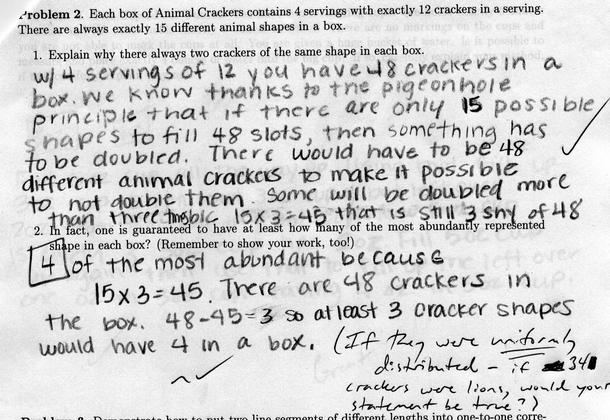 Problem 2. Each box of Animal Crackers contains 4 servings with exactly 12 crackers in a serving.
There are always exactly 15 different animal shapes in a box.
1. Explain why there always two crackers of the same shape in each box.
w/ 4 servings of 12 you have 48 crackers in a
box. We know thanks to the pigeonhole
principle that if there are only 15 possible
shapes to fill 48 slots, then something has
to be doubled. There would have to be 48
different animal crackers to make it possible
to not double them. Some will be doubled more
than three times b/c 15x3=45 that is still 3 shy of 48
2. In fact, one is guaranteed to have at least how many of the most abundantly represented
shape in each box? (Remember to show your work, too!)
4 of the most abundant because
15x3=45. There are 48 crackers in
the box. 48-45=3 so at least 3 cracker shapes
would have 4 in a box. (If they were uniformly
distributed - if 34
crackers were lions, would your
statement be true?)
Problem 3. Demonstrate how to put two line segments of different lengths into one-to-one corre-